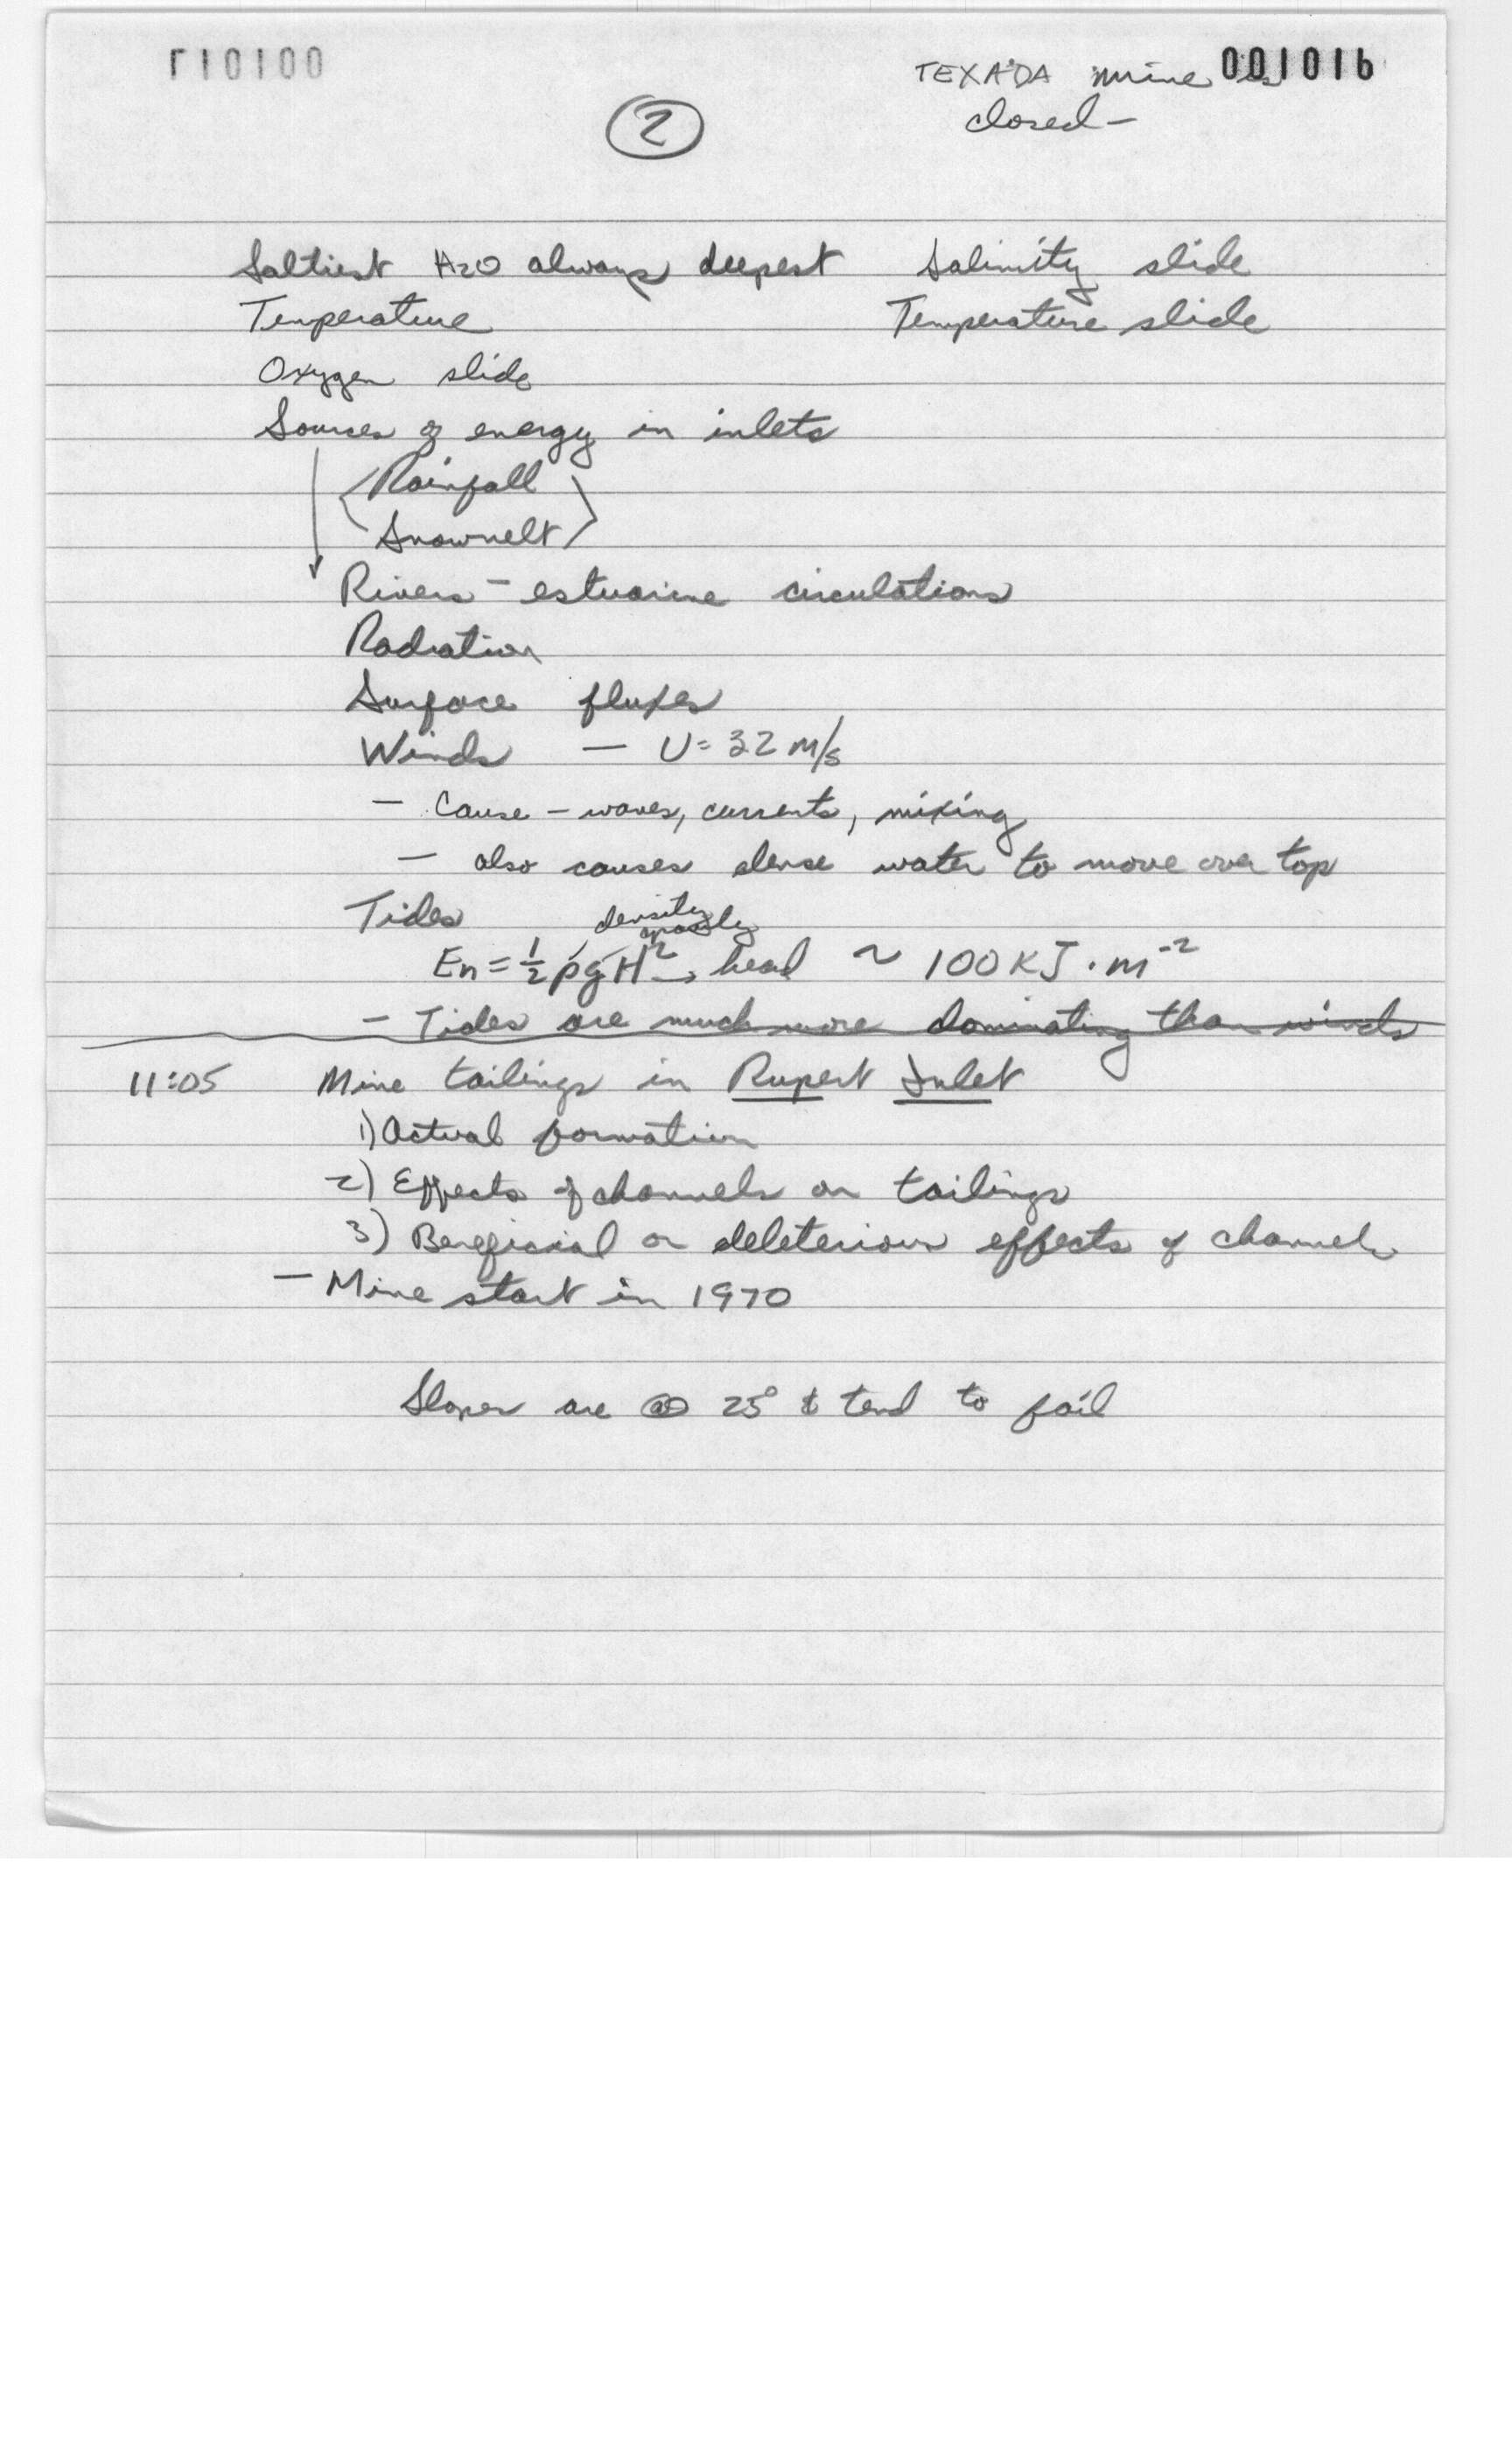 001016
TEXADA mine is
closed -
2
Saltiest H2O always deepest Salinity slide
Temperature Temperature slide
Oxygen slide
Sources of energy in inlets
Rainfall
Snowmelt
Rivers - estuarine circulations
Radiation
Surface fluxes
Winds - U = 32 m/s
- Cause - waves, currents, mixing
- also causes dense water to move over top
Tides
density
gravity
En = 1/2 ρgH² → head ~ 100 KJ·m⁻²
- Tides are much more dominating than winds
11:05 Mine tailings in Rupert Inlet
1) Actual formation
2) Effects of channels on tailings
3) Beneficial or deleterious effects of channels
- Mine start in 1970
Slopes are @ 25° & tend to fail